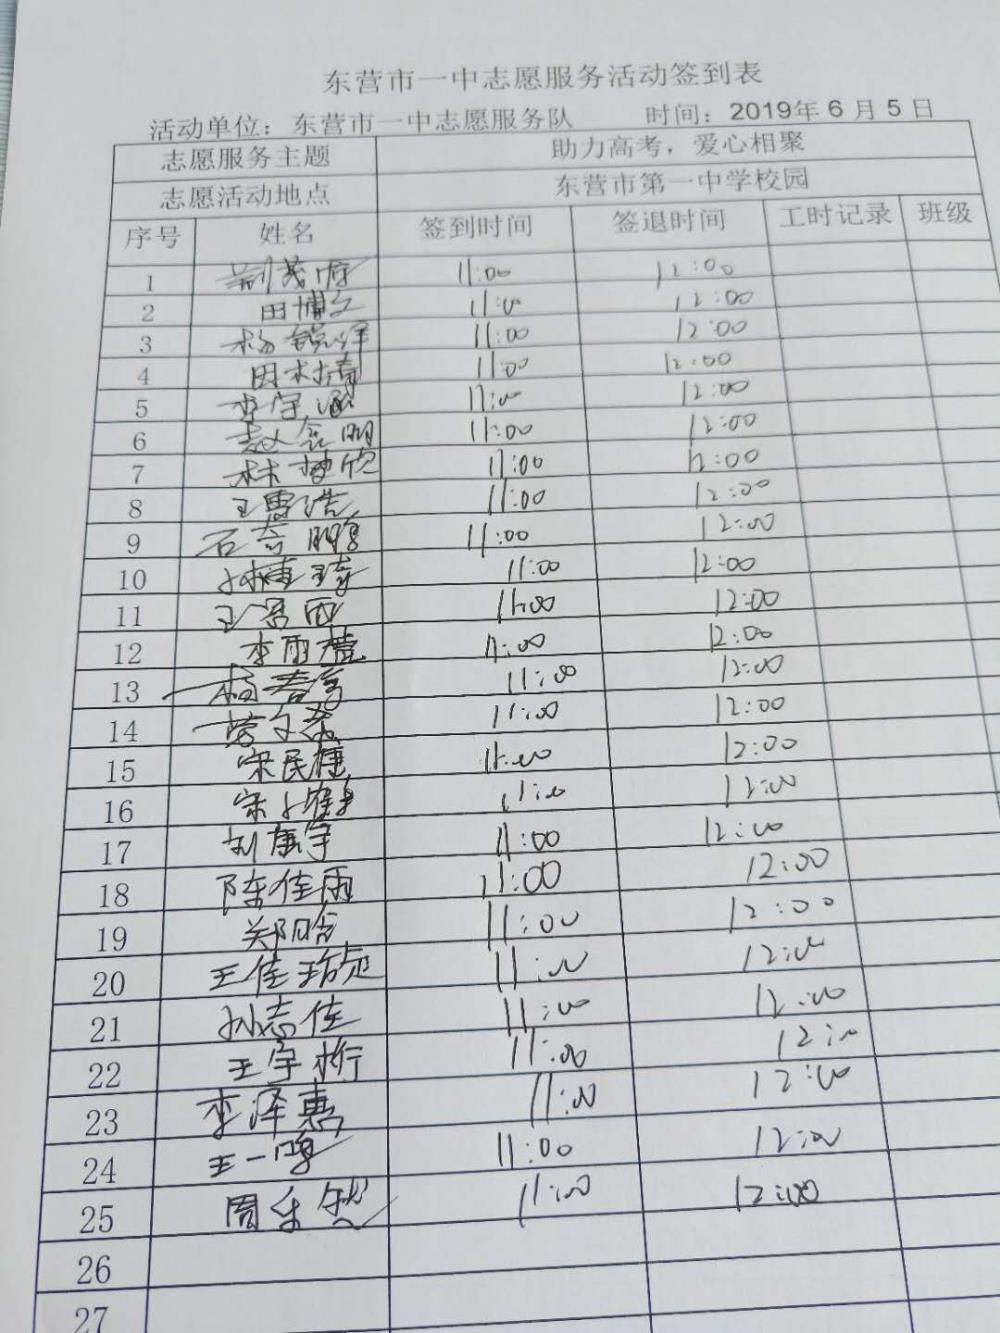 东营市一中志愿服务活动签到表
活动单位：东营市一中志愿服务队 时间：2019年6月5日
志愿服务主题 助力高考，爱心相聚
志愿活动地点 东营市第一中学校园
序号 姓名 签到时间 签退时间 工时记录 班级
1 11:00 12:00
2 田博文 11:00 12:00
3 杨 11:00 12:00
4 田 11:00 12:00
5 李宇涵 11:00 12:00
6 赵 明 11:00 12:00
7 林 欣 11:00 12:00
8 王 浩 11:00 12:00
9 石奇鹏 11:00 12:00
10 11:00 12:00
11 王 11:00 12:00
12 李雨 11:00 12:00
13 杨春 11:00 12:00
14 11:00 12:00
15 宋民捷 11:00 12:00
16 宋 11:00 12:00
17 刘康宇 11:00 12:00
18 陈佳雨 11:00 12:00
19 郑晗 11:00 12:00
20 王佳 11:00 12:00
21 孙志佳 11:00 12:00
22 王宇桁 11:00 12:00
23 李泽惠 11:00 12:00
24 王一鸣 11:00 12:00
25 周乐然 11:00 12:00
26
27